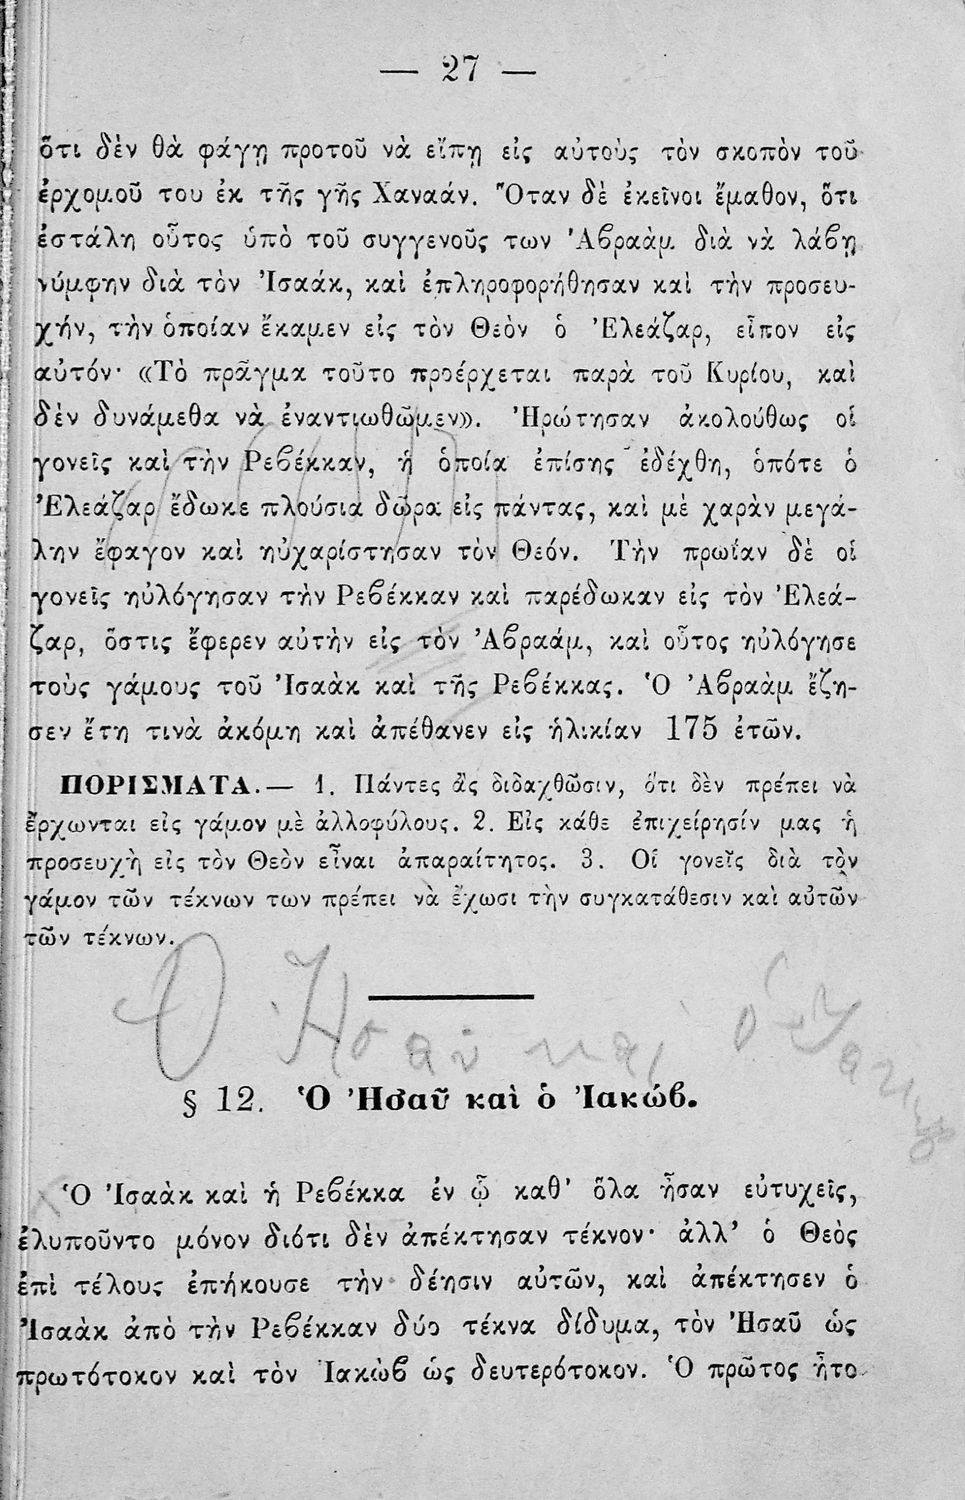 — 27 —
ὅτι δὲν θὰ φάγῃ προτοῦ νὰ εἴπῃ εἰς αὐτοὺς τὸν σκοπὸν τοῦ
ἐρχομοῦ του ἐκ τῆς γῆς Χαναάν. Ὅταν δὲ ἐκεῖνοι ἔμαθον, ὅτι
ἐστάλη οὗτος ὑπὸ τοῦ συγγενοῦς των Ἀβραὰμ διὰ νὰ λάβῃ
νύμφην διὰ τὸν Ἰσαάκ, καὶ ἐπληροφορήθησαν καὶ τὴν προσευ-
χήν, τὴν ὁποίαν ἔκαμεν εἰς τὸν Θεὸν ὁ Ἐλεάζαρ, εἶπον εἰς
αὐτόν· «Τὸ πρᾶγμα τοῦτο προέρχεται παρὰ τοῦ Κυρίου, καὶ
δὲν δυνάμεθα νὰ ἐναντιωθῶμεν». Ἠρώτησαν ἀκολούθως οἱ
γονεῖς καὶ τὴν Ρεβέκκαν, ἡ ὁποία ἐπίσης ἐδέχθη, ὁπότε ὁ
Ἐλεάζαρ ἔδωκε πλούσια δῶρα εἰς πάντας, καὶ μὲ χαρὰν μεγά-
λην ἔφαγον καὶ ηὐχαρίστησαν τὸν Θεόν. Τὴν πρωΐαν δὲ οἱ
γονεῖς ηὐλόγησαν τὴν Ρεβέκκαν καὶ παρέδωκαν εἰς τὸν Ἐλεά-
ζαρ, ὅστις ἔφερεν αὐτὴν εἰς τὸν Ἀβραάμ, καὶ οὗτος ηὐλόγησε
τοὺς γάμους τοῦ Ἰσαὰκ καὶ τῆς Ρεβέκκας. Ὁ Ἀβραὰμ ἔζη-
σεν ἔτη τινὰ ἀκόμη καὶ ἀπέθανεν εἰς ἡλικίαν 175 ἐτῶν.
ΠΟΡΙΣΜΑΤΑ.— 1. Πάντες ἂς διδαχθῶσιν, ὅτι δὲν πρέπει νὰ
ἔρχωνται εἰς γάμον μὲ ἀλλοφύλους. 2. Εἰς κάθε ἐπιχείρησίν μας ἡ
προσευχὴ εἰς τὸν Θεὸν εἶναι ἀπαραίτητος. 3. Οἱ γονεῖς διὰ τὸν
γάμον τῶν τέκνων των πρέπει νὰ ἔχωσι τὴν συγκατάθεσιν καὶ αὐτῶν
τῶν τέκνων.
Ὁ Ἠσαῦ καὶ ὁ Ἰακὼβ
§ 12. Ὁ Ἠσαῦ καὶ ὁ Ἰακώβ.
Ὁ Ἰσαὰκ καὶ ἡ Ρεβέκκα ἐν ᾧ καθ' ὅλα ἦσαν εὐτυχεῖς,
ἐλυποῦντο μόνον διότι δὲν ἀπέκτησαν τέκνον· ἀλλ' ὁ Θεὸς
ἐπὶ τέλους ἐπήκουσε τὴν δέησιν αὐτῶν, καὶ ἀπέκτησεν ὁ
Ἰσαὰκ ἀπὸ τὴν Ρεβέκκαν δύο τέκνα δίδυμα, τὸν Ἠσαῦ ὡς
πρωτότοκον καὶ τὸν Ἰακὼβ ὡς δευτερότοκον. Ὁ πρῶτος ἦτο